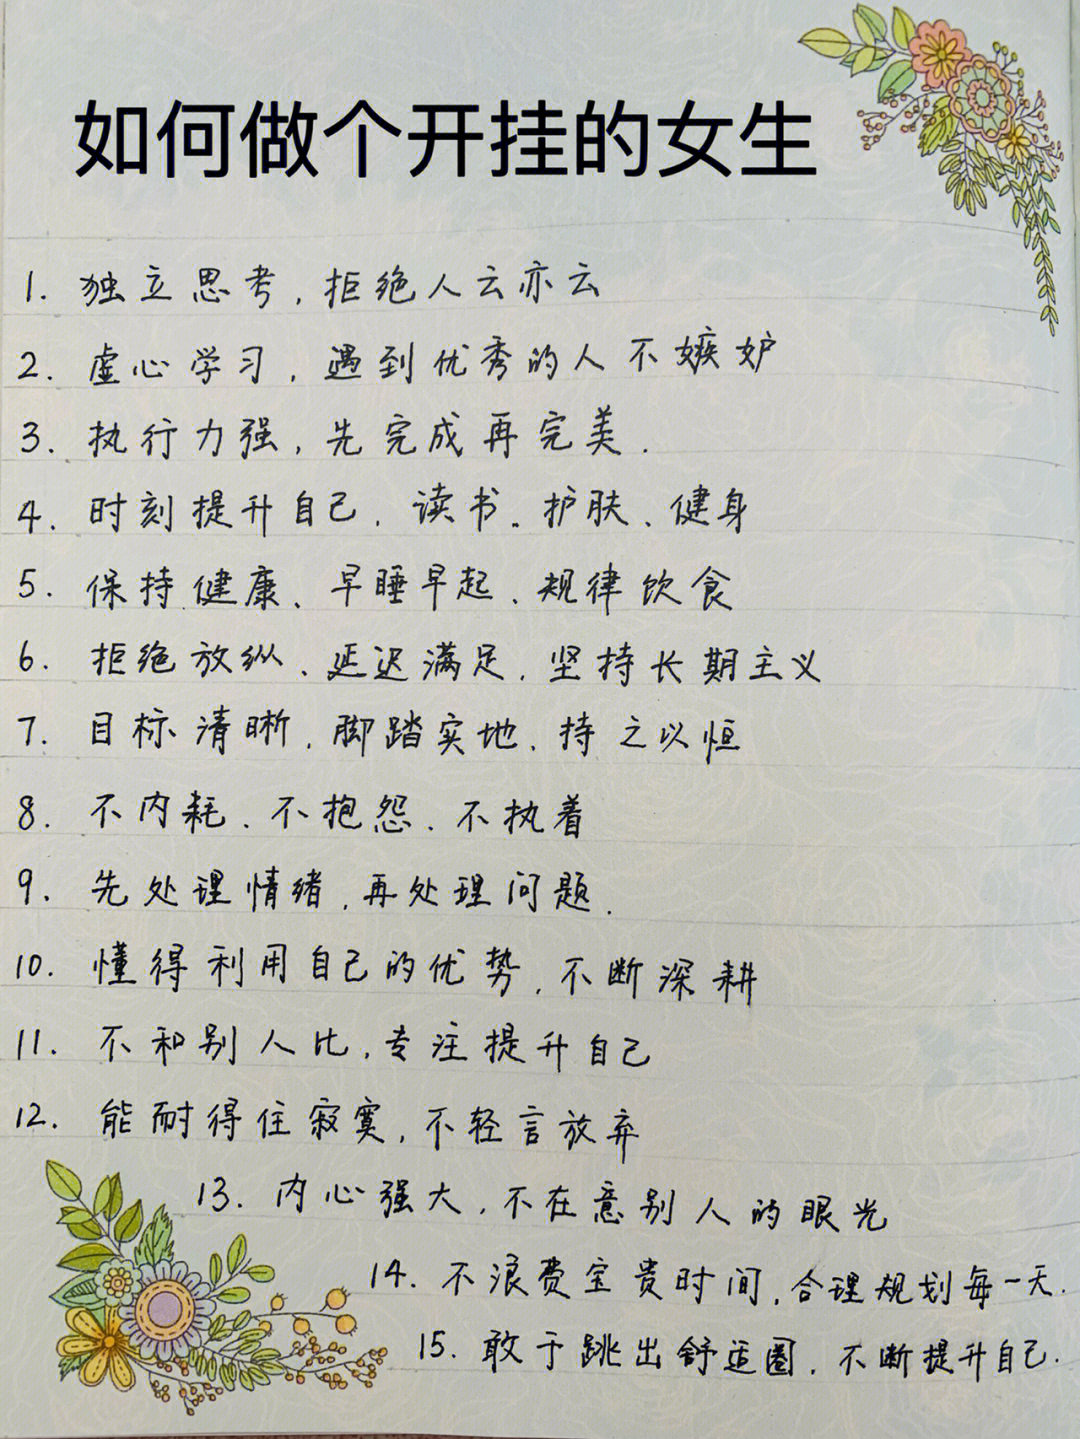 如何做个开挂的女生
1. 独立思考，拒绝人云亦云
2. 虚心学习，遇到优秀的人不嫉妒
3. 执行力强，先完成再完美.
4. 时刻提升自己、读书。护肤、健身
5. 保持健康、早睡早起、规律饮食
6. 拒绝放纵、延迟满足，坚持长期主义
7. 目标清晰，脚踏实地、持之以恒
8. 不内耗、不抱怨、不执着
9. 先处理情绪，再处理问题.
10. 懂得利用自己的优势，不断深耕
11. 不和别人比，专注提升自己
12. 能耐得住寂寞，不轻言放弃
13. 内心强大，不在意别人的眼光
14. 不浪费宝贵时间，合理规划每一天.
15. 敢于跳出舒适圈，不断提升自己.